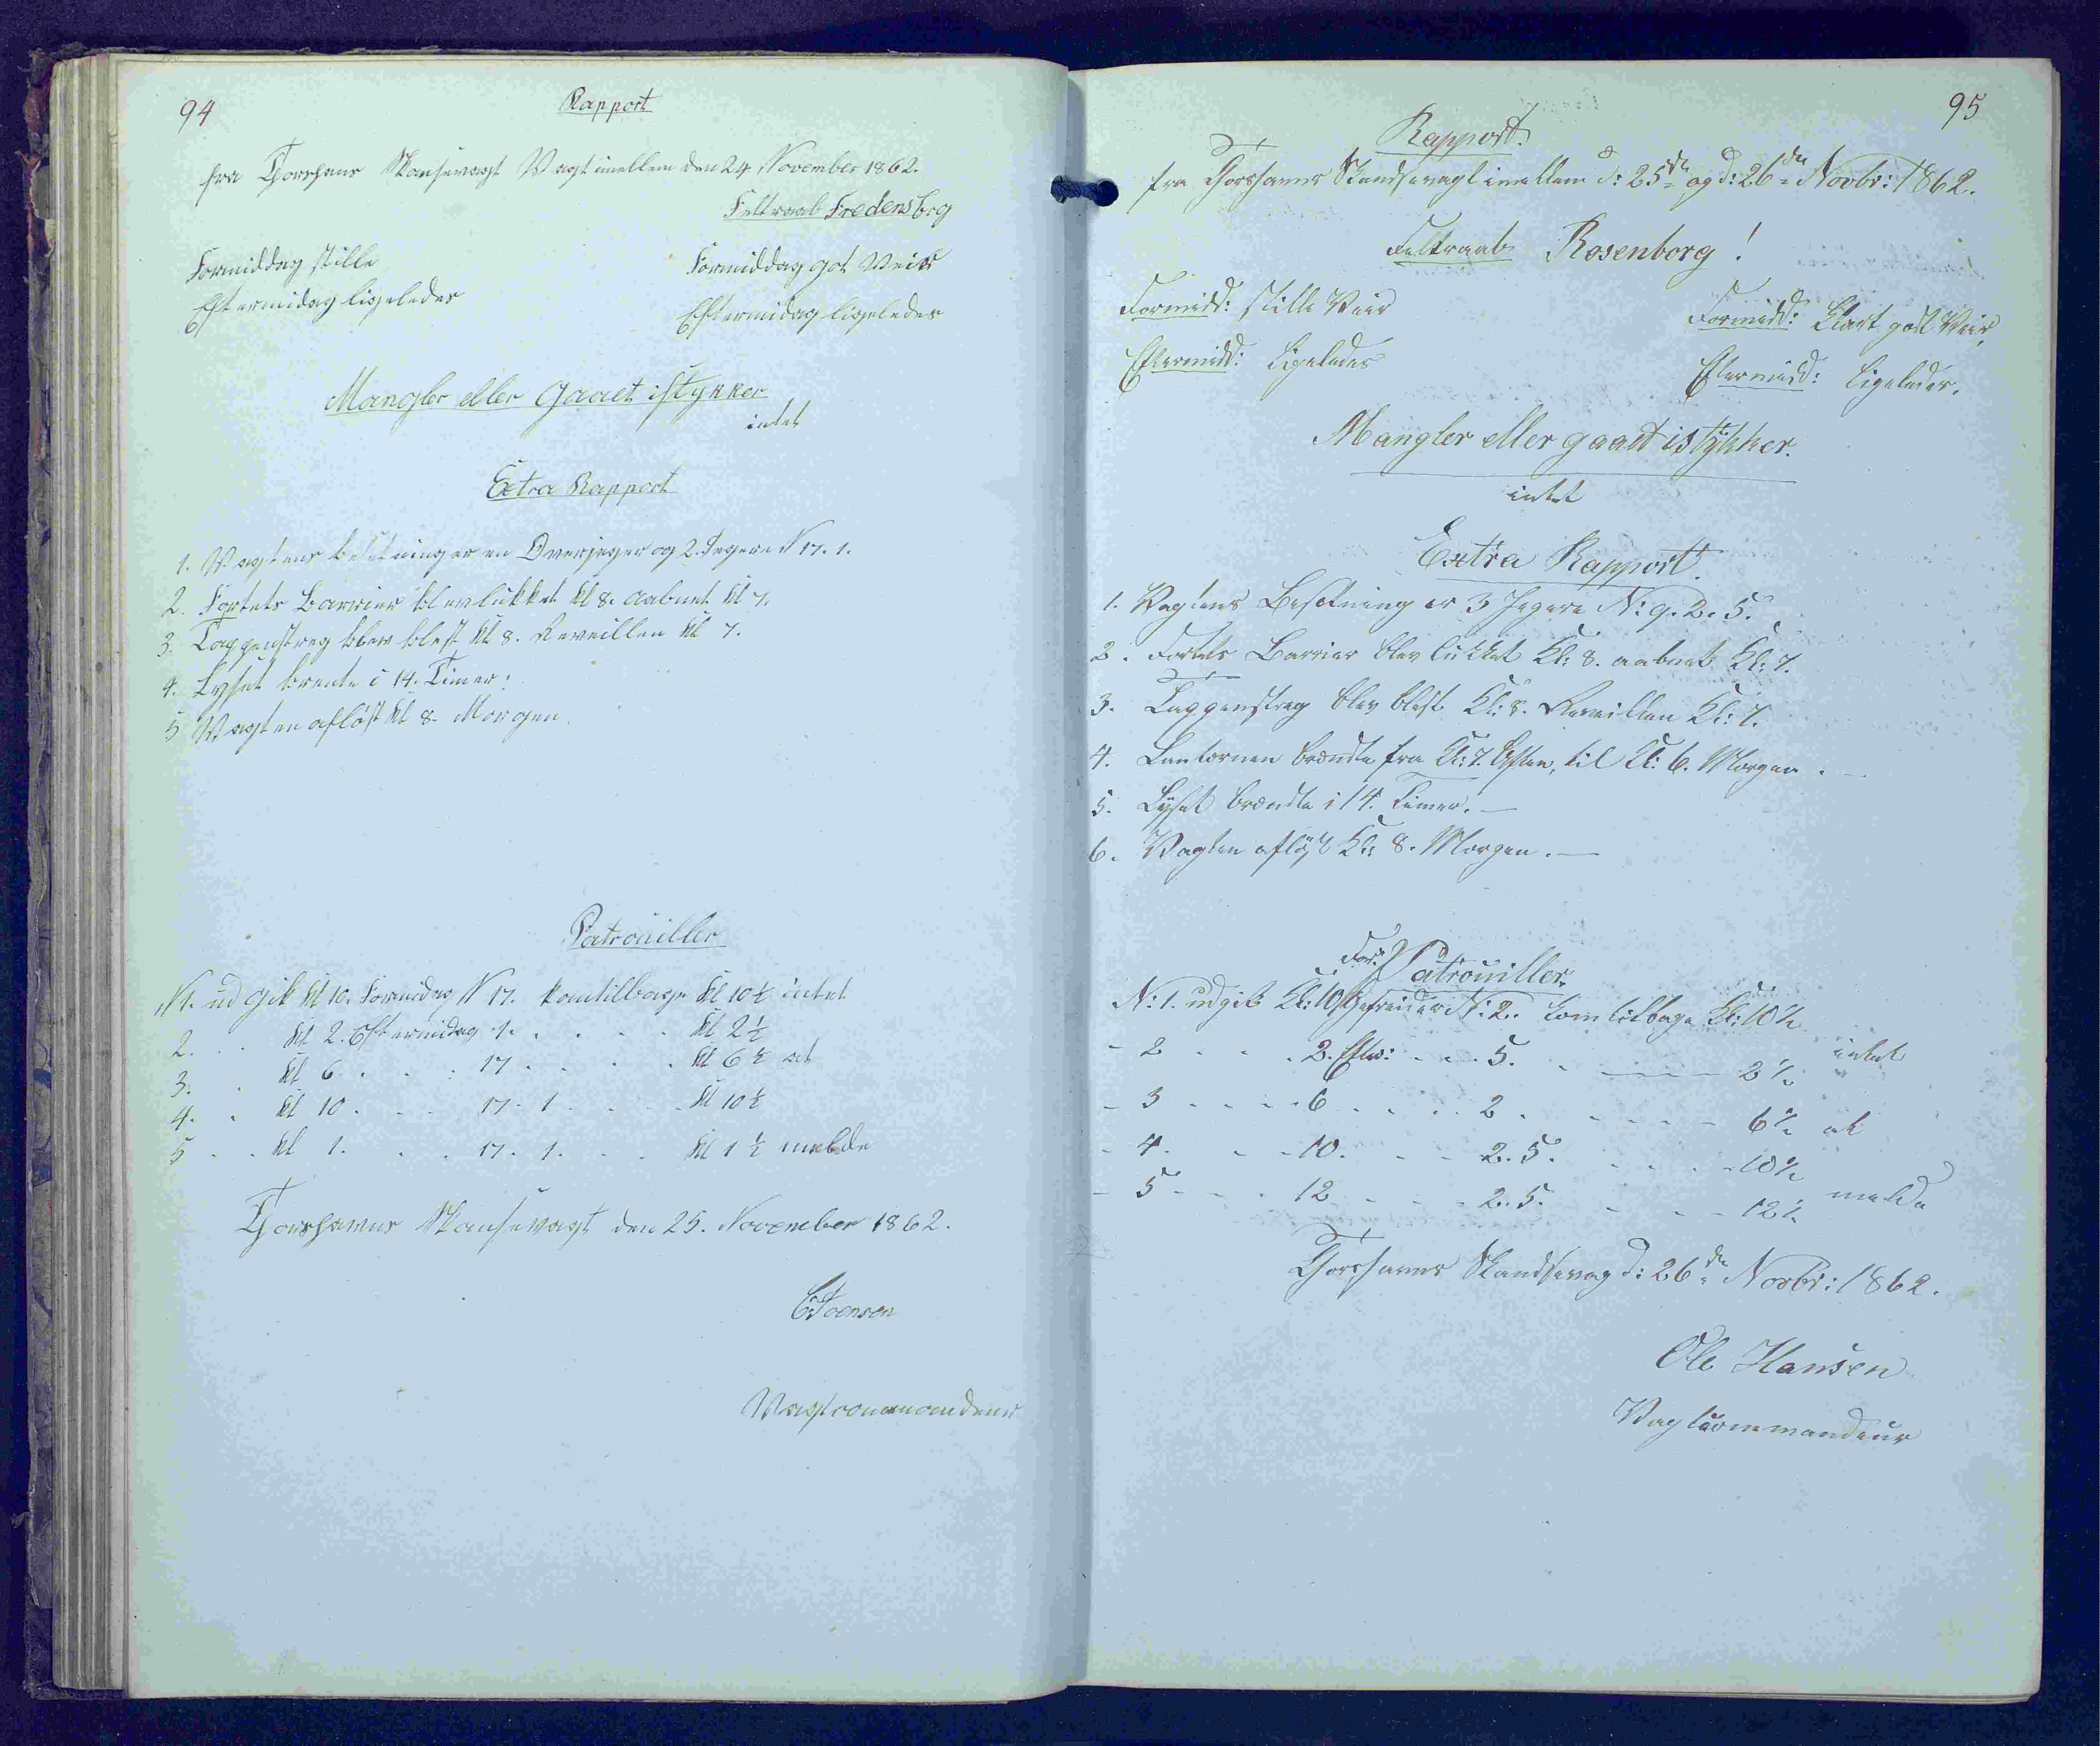 94
Rapport
fra Thorshavns Skansevagt Vagt imellem den 24 November 1862.
Feltraab Fredensborg
Formiddag stille Formiddag got Veir
Eftermidag ligeledes Eftermidag ligeledes
Mangler eller Gaaet istykker
intet
Extra Rapport
1. Vagtens besetning er en Overjeger og 2. Jegere N 17. 1.
2. Fortets Barrier blev lukket Kl 8. aabnet Kl 7.
3. Tappenstreg blev blest Kl 8. Reveillen Kl 7.
4. Lyset brente i 14. Timer.
5 Vagten afløst Kl 8. Morgen.
Patrouiller
N 1. ud gik Kl 10. Formidag N 17. kom tilbage Kl 10½ intet
2. . . Kl 2. Eftermidag 1. . . . . Kl 2½
3. . Kl 6 . . . 17 . . . . Kl 6½ at
4. . Kl 10 . . . 17. 1 . . . . Kl 10½
5 . . Kl 1. . . . 17. 1. . . Kl 1½ melde
Thorshavns Skansevagt den 25. November 1862.
Joensen
Vagtcommandeur
95
Rapport.
fra Thorshavns Skandsevagt imellem d: 25de og d: 26de Novbr: 1862.
Feltraab Rosenborg!
Formidd: stille Veir Formidd: Klart godt Veir,
Eftermidd: ligeledes Eftermidd: ligeledes.
Mangler eller gaaet istykker.
intet
Extra Rapport.
1. Vagtens Besetning er 3 Jegere N: 9. 2. 5.
2. Fortets Barrier blev lukket Kl: 8. aabnet Kl: 7.
3. Tappenstreg blev blest Kl: 8. Reveillen Kl: 7.
4. Lanternen brændte fra Kl: 7. Aften, til Kl: 6. Morgen. —
5. Lyset brændte i 14. Timer. —
6. Vagten afløst Kl: 8. Morgen. —
Patrouiller.
N: 1. udgik Kl: 10 For: Gefreider N: 2. kom tilbage Kl: 10½
- 2 . . . 2. Efter: - . . 5. . — 2½ intet
- 3 . . . . 6 . . . . 2 . . . . . 6½ at
- 4. . . 10. . . 2. 5. . . . . 10½
- 5 - . . 12 . . . 2. 5. . . . 12½ melde
Thorshavns Skandsevag d: 26de Novbr: 1862.
Ole Hansen
Vagtcommandeur